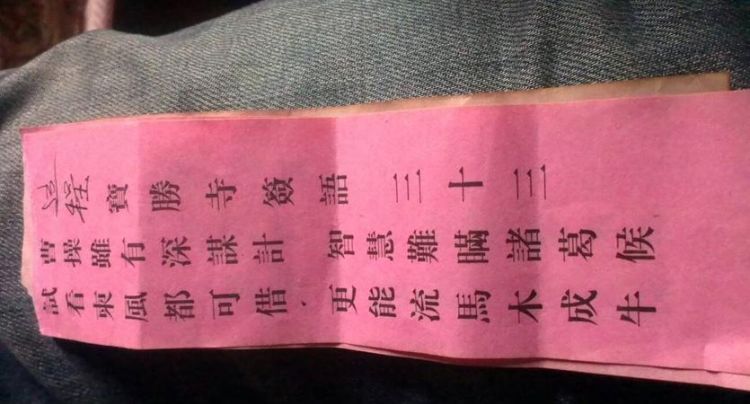 寶勝寺簽語三十三
曹操雖有深謀計 智慧難瞞諸葛候
試看東風都可借 更能流馬木成牛